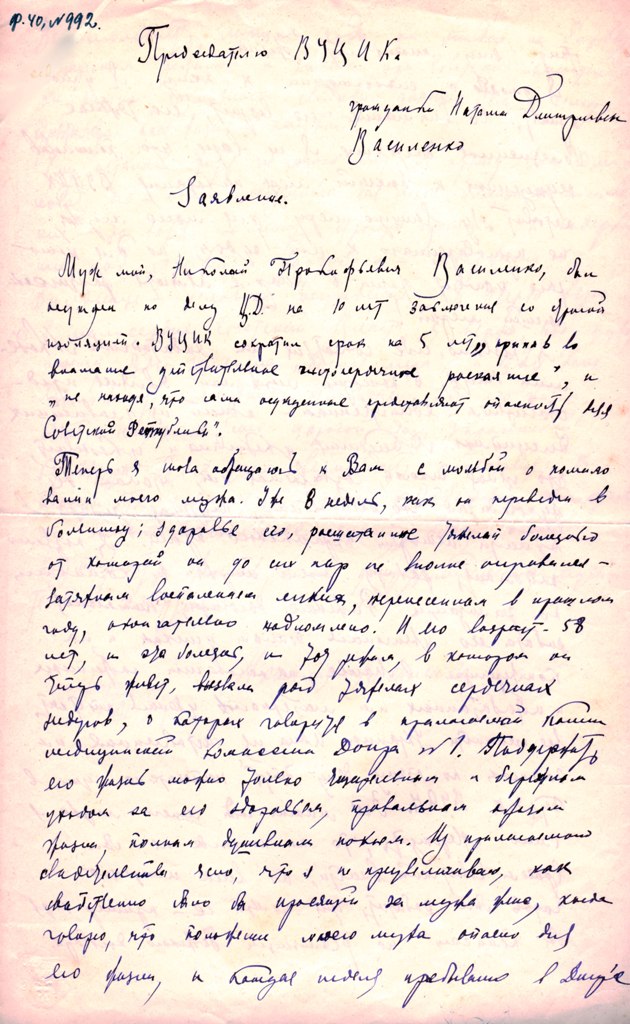 Ф.40, №992.
Председателю ВУЦИК.
гражданки Наталии Дмитриевны
Василенко
Заявление.
Муж мой, Николай Прокофьевич Василенко, был
осужден по делу Ц.Д. на 10 лет заключения со строгой
изоляцией. ВУЦИК сократил срок на 5 лет, приняв во
внимание действительное чистосердечное раскаяние", и
„не находя, что сами осужденные представляют опасность для
Советской Республики".
Теперь я снова обращаюсь к Вам с мольбой о помило
вании моего мужа. Уже 8 недель, как он переведен в
больницу; здоровье его, расшатанное тяжелой болезнью
от которой он до сих пор не вполне оправился –
затяжным воспалением легких, перенесенным в прошлом
году, окончательно надломлено. И его возраст - 58
лет, и эта болезнь, и тот режим, в котором он
теперь живет, вызвали ряд тяжелых сердечных
о которых говорится в прилагаемой копии
медицинской комиссии Допра №1. Поддержать
его жизнь можно только тщательным и бережным
уходом за его здоровьем, правильным образом
жизни, полным душевным покоем. Из прилагаемого
свидетельства ясно, что я не преувеличиваю, как
свойственно было бы просящей за мужа жене, когда
говорю, что положение моего мужа опасно для
его жизни, и каждая неделя пребывания в Допр'е